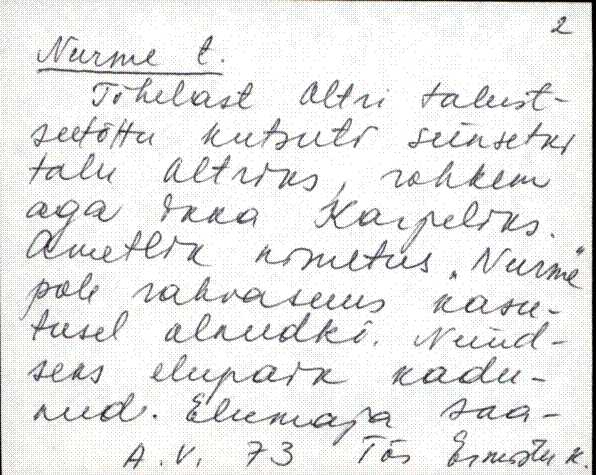 2
Nurme t.
Tõhelast Altri talust-
seetõttu kutsuti siinsetki
talu Altriks, rohkem
aga ikka Karpeliks.
Ametlik nimetus „Nurme"
pole rahvasuus kasu-
tusel olnudki. Nüüd-
seks elupaik kadu-
nud. Elumaja saa-
A.V. 73 Tõs Ermistu k.